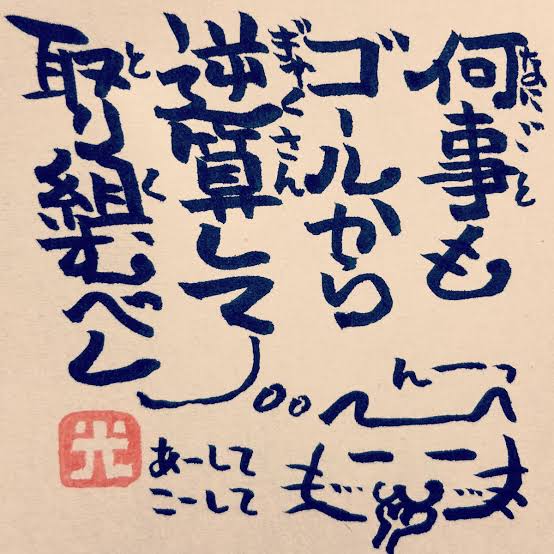 何事も
なにごと
ゴールから
逆算して
ぎゃくさん
取り組むべし
と
く
んーっ
あーして
こーして
光